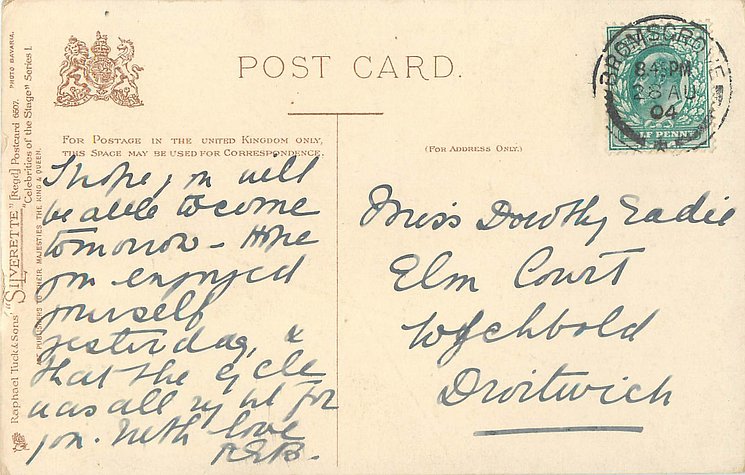 POST CARD.
FOR POSTAGE IN THE UNITED KINGDOM ONLY,
THIS SPACE MAY BE USED FOR CORRESPONDENCE.
(FOR ADDRESS ONLY.)
I hope you will
be able to come
tomorrow – Hope
you enjoyed
yourself
yesterday, &
that the cycle
was all right for
you. With love
Miss Dorothy Eadie
Elm Court
Wychbold
Droitwich
BROMSGROVE
8.45 PM
28 AU
04
HALF PENNY
Raphael Tuck & Sons' "SILVERETTE" [Regd] Postcard 6607.
"Celebrities of the Stage" Series I.
ART PUBLISHERS TO THEIR MAJESTIES THE KING & QUEEN.
PHOTO BAVARIA.